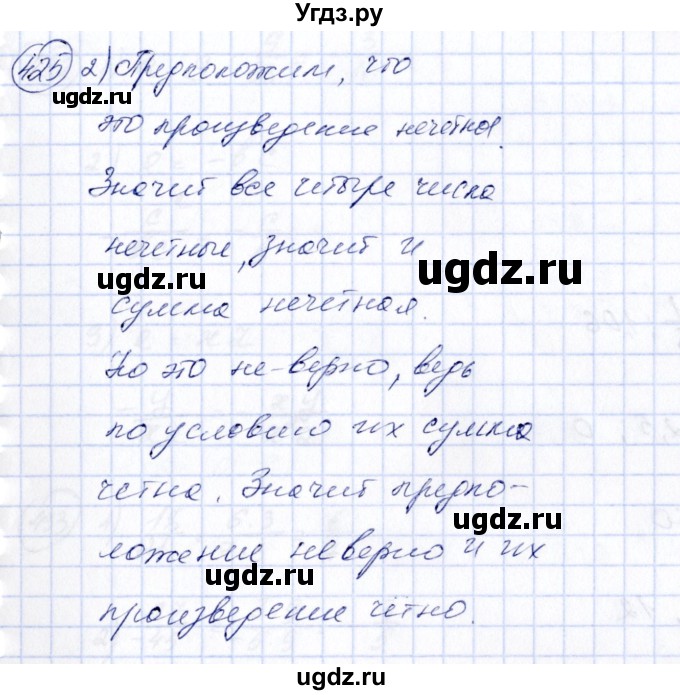 Угдз.ру
425 2) Предположим, что
ugdz.ru ugdz.ru
это произведение нечётноя.
Значит все четыре числа
нечётные, значит и
ugdz.ru ugdz.ru
сумма нечётная.
Но это не-верно, ведь
по условию их сумма
чётна. Значит предпо-
ugdz.ru
ложение неверно и их
ugdz.ru
произведение чётно.
ugdz.ru